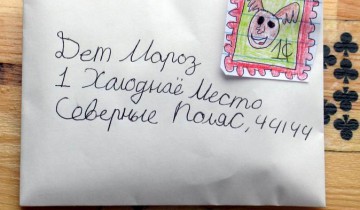 1¢
Дет Мороз
1 Хаюднаё Место
Северные Поляс, 44144